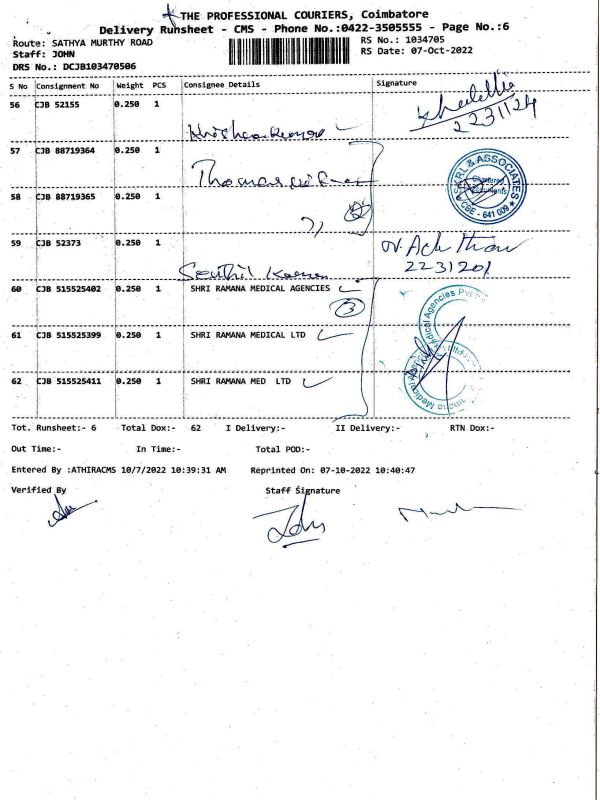 THE PROFESSIONAL COURIERS, Coimbatore
Delivery Runsheet - CMS - Phone No.:0422-3505555 - Page No.:6
Route: SATHYA MURTHY ROAD
RS No.: 1034705
Staff: JOHN
RS Date: 07-Oct-2022
DRS No.: DCJB103470506
S No Consignment No Weight PCS Consignee Details Signature
56 CJB 52155 0.250 1
2231124
57 CJB 88719364 0.250 1
Thomas
& ASSOCIATES
CBE - 641 009
58 CJB 88719365 0.250 1
2
59 CJB 52373 0.250 1
2231201
Senthil Kumar
60 CJB 515525402 0.250 1 SHRI RAMANA MEDICAL AGENCIES
3
Medical Agencies Pvt
61 CJB 515525399 0.250 1 SHRI RAMANA MEDICAL LTD
62 CJB 515525411 0.250 1 SHRI RAMANA MED LTD
Tot. Runsheet:- 6 Total Dox:- 62 I Delivery:- II Delivery:- RTN Dox:-
Out Time:- In Time:- Total POD:-
Entered By :ATHIRACMS 10/7/2022 10:39:31 AM Reprinted On: 07-10-2022 10:40:47
Verified By Staff Signature